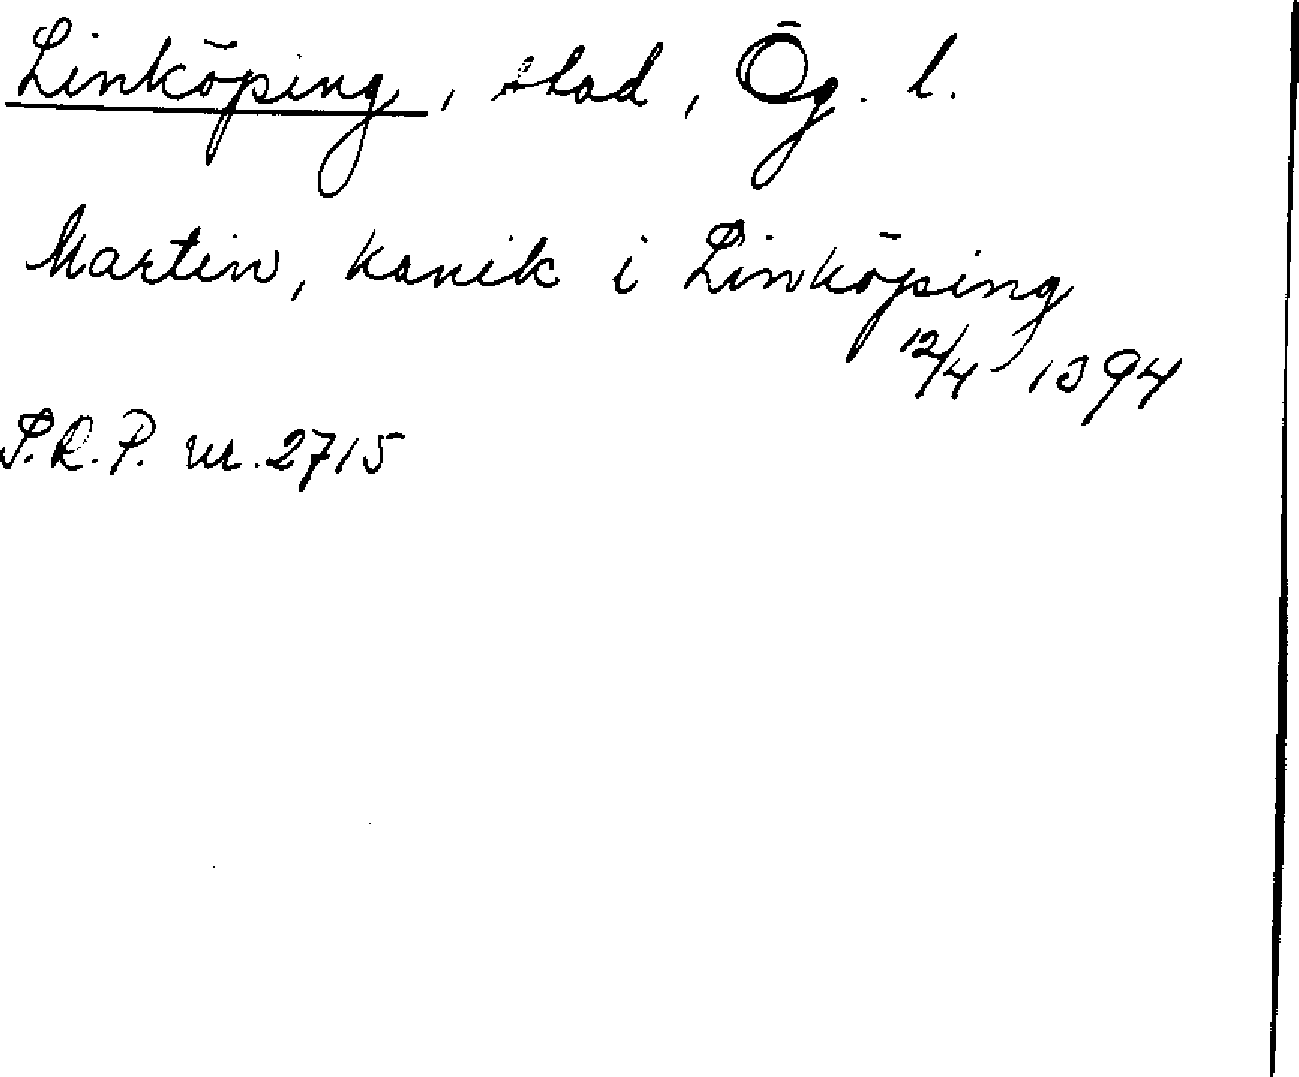 Linköping, stad, Ög. l.
Martin, kanik i Linköping
12/4 1394
P.R.P. nr. 2715